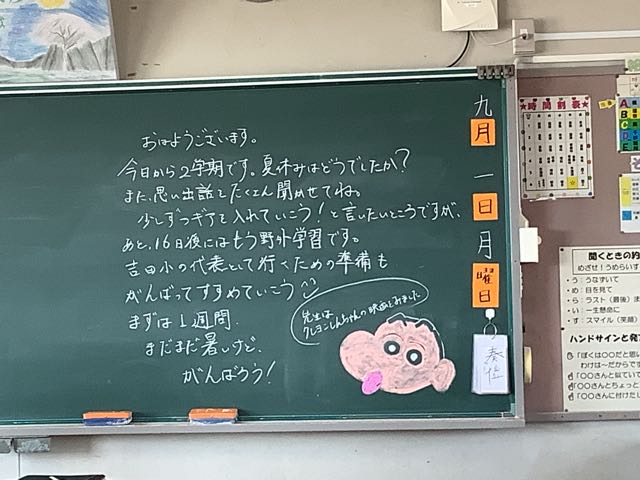 おはようございます。
今日から2学期です。夏休みはどうでしたか?
また、思い出話をたくさん聞かせてね。
少しずつギアを入れていこう!と言いたいところですが、
あと、16日後にはもう野外学習です。
吉田小の代表として行くための準備も
がんばってすすめていこう
まずは1週間
まだまだ暑いけど、
がんばろう!
先生は
クレヨンしんちゃんの映画をみました
九
月
一
日
月
曜
日
★時間割表★
A
B
C
D
E
聞くときの約
めざせ!うめらいす
・う:うなずいて
・め:目を見て
・ら:ラスト(最後)ま
・い:一生懸命に
・す:スマイル(笑顔)
ハンドサインと発
「ぼくは〇〇だと思い
わけは~だからです
「〇〇さんと似ていて
「〇〇さんとちょっと
「〇〇さんに付けたし